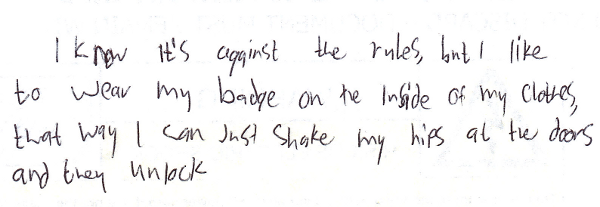 I know it's against the rules, but I like
to wear my badge on the inside of my clothes,
that way I can just shake my hips at the doors
and they unlock